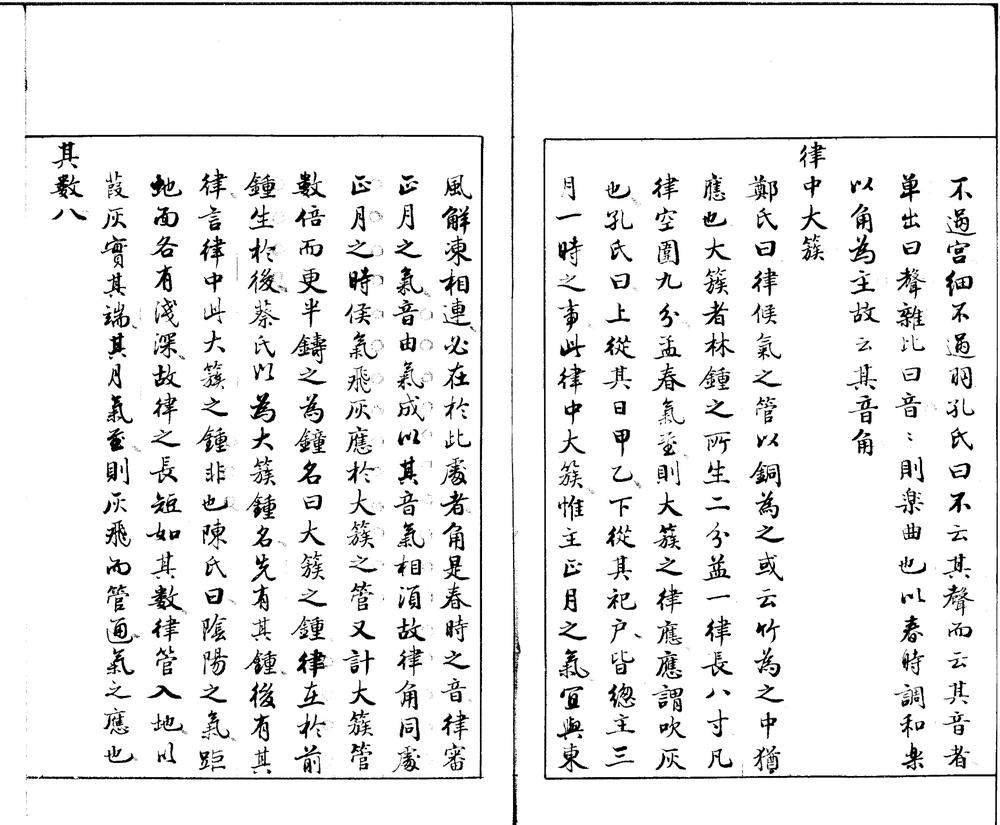 不過宫細不過羽孔氏曰不云其聲而云其音者
單出曰聲雜比曰音〻則楽曲也以春時調和楽
以角為主故云其音角
律中大簇
鄭氏曰律候氣之管以銅為之或云竹為之中猶
應也大簇者林鍾之所生二分益一律長八寸凡
律空圍九分孟春氣至則大簇之律應應謂吹灰
也孔氏曰上從其日甲乙下從其祀户皆總主三
月一時之事此律中大簇惟主正月之氣宜與東
風解凍相連必在於此處者角是春時之音律審
正月之氣音由氣成以其音氣相須故律角同處
正月之時候氣飛灰應於大簇之管又計大簇管
數倍而更半鑄之為鐘名曰大簇之鍾律在於前
鍾生於後蔡氏以為大簇鍾名先有其鍾後有其
律言律中此大簇之鍾非也陳氏曰陰陽之氣距
地面各有淺深故律之長短如其數律管入地以
葭灰實其端其月氣至則灰飛而管通氣之應也
其数八